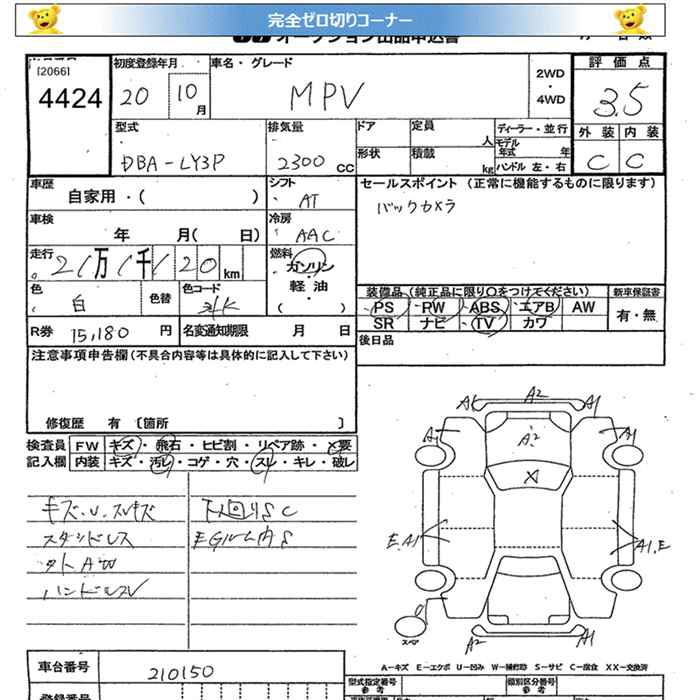 完全ゼロ切りコーナー
オークション出品申込書
[2066]
4424
初度登録年月
20 10 月
車名・グレード
MPV
2WD
・
4WD
評価点
3.5
外装 内装
C C
型式
DBA-LY3P
排気量
2300 CC
ドア 定員 人
形状 積載 kg
ディーラー・並行
モデル年式 年
ハンドル 左・右
車歴
自家用・( )
シフト
・AT
車検
年 月( 日)
冷房
・AAC
セールスポイント (正常に機能するものに限ります)
バックカメラ
走行
21万1千120km
燃料
ガソリン
軽・油
( )
色
白
色替
色コード
装備品 (純正品に限り○をつけてください)
新車保証書
PS PW ABS エアB AW
SR ナビ TV カワ
有・無
R券 15,180 円
名変通知期限 月 日
後日品
注意事項申告欄(不具合内容等は具体的に記入して下さい)
修復歴 有 〔箇所 〕
検査員 FW キズ・飛石・ヒビ割・リペア跡・X要
記入欄 内装 キズ・汚レ・コゲ・穴・スレ・キレ・破レ
キズ.U.スレキズ
下廻りSC
スタッドレス
EGルーム内S
タトAW
ハンドルスレ
A1 A2 A1
A1 A2 A1
X
E.A1 A1.E
スペア
A2 A1
A-キズ E-エクボ U-凹み W-補修跡 S-サビ C-腐食 XX-交換済
車台番号
210150
型式指定番号
参考
類別区分番号
参考
登録番号